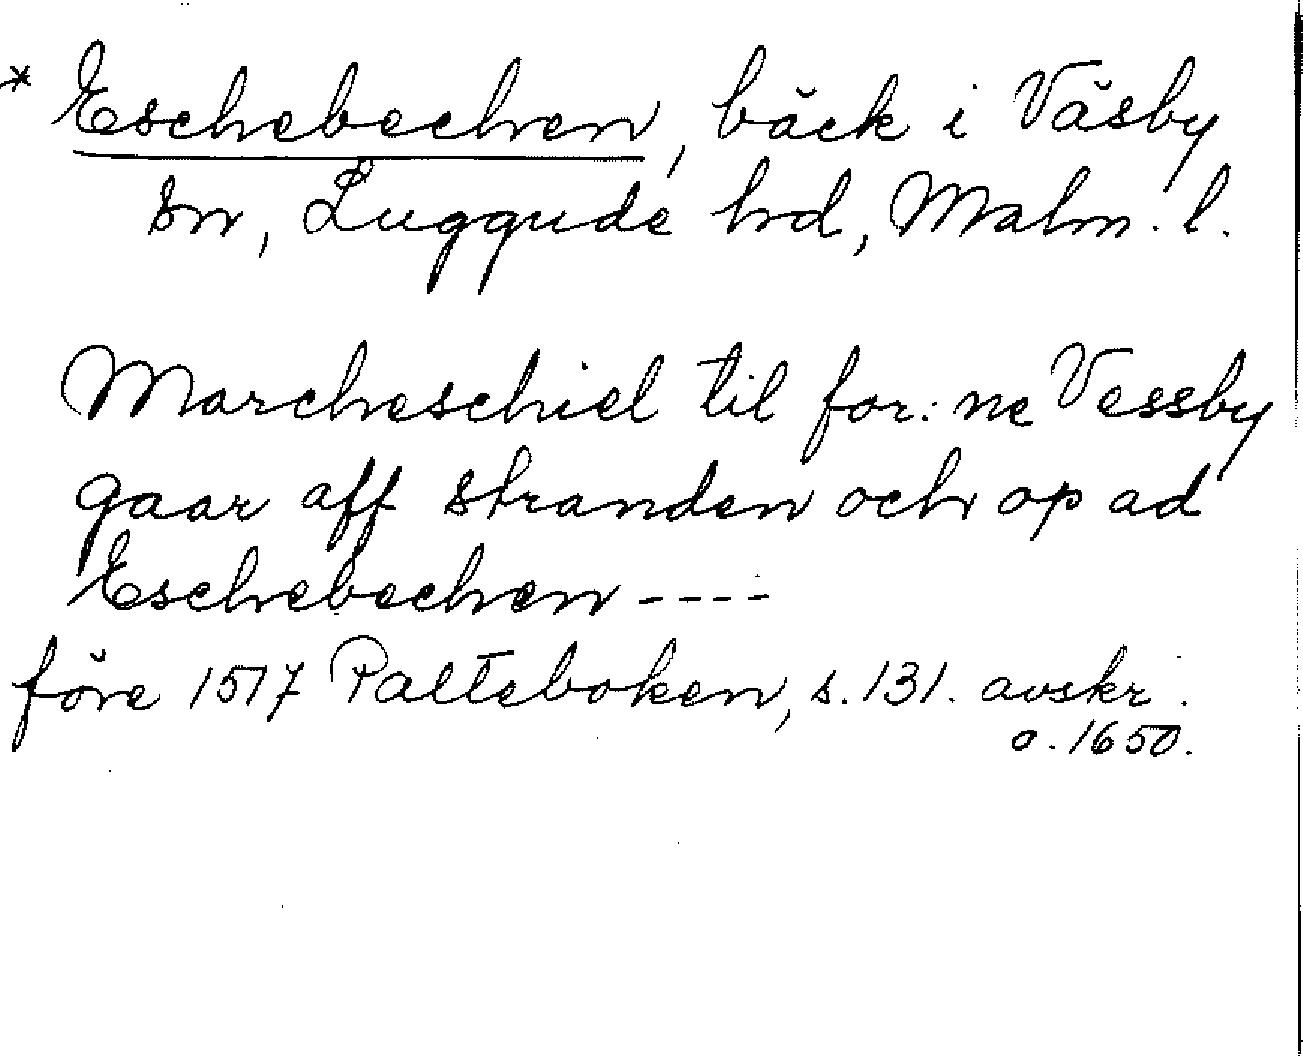 * Eschebechen, bäck i Väsby
sn, Luggude hd, Malm. l.
Marcheschiel til for:ne Vessby
gaar aff stranden och op ad
Eschebechen ----
före 1517 Palteboken, s. 131. avskr.
o. 1650.